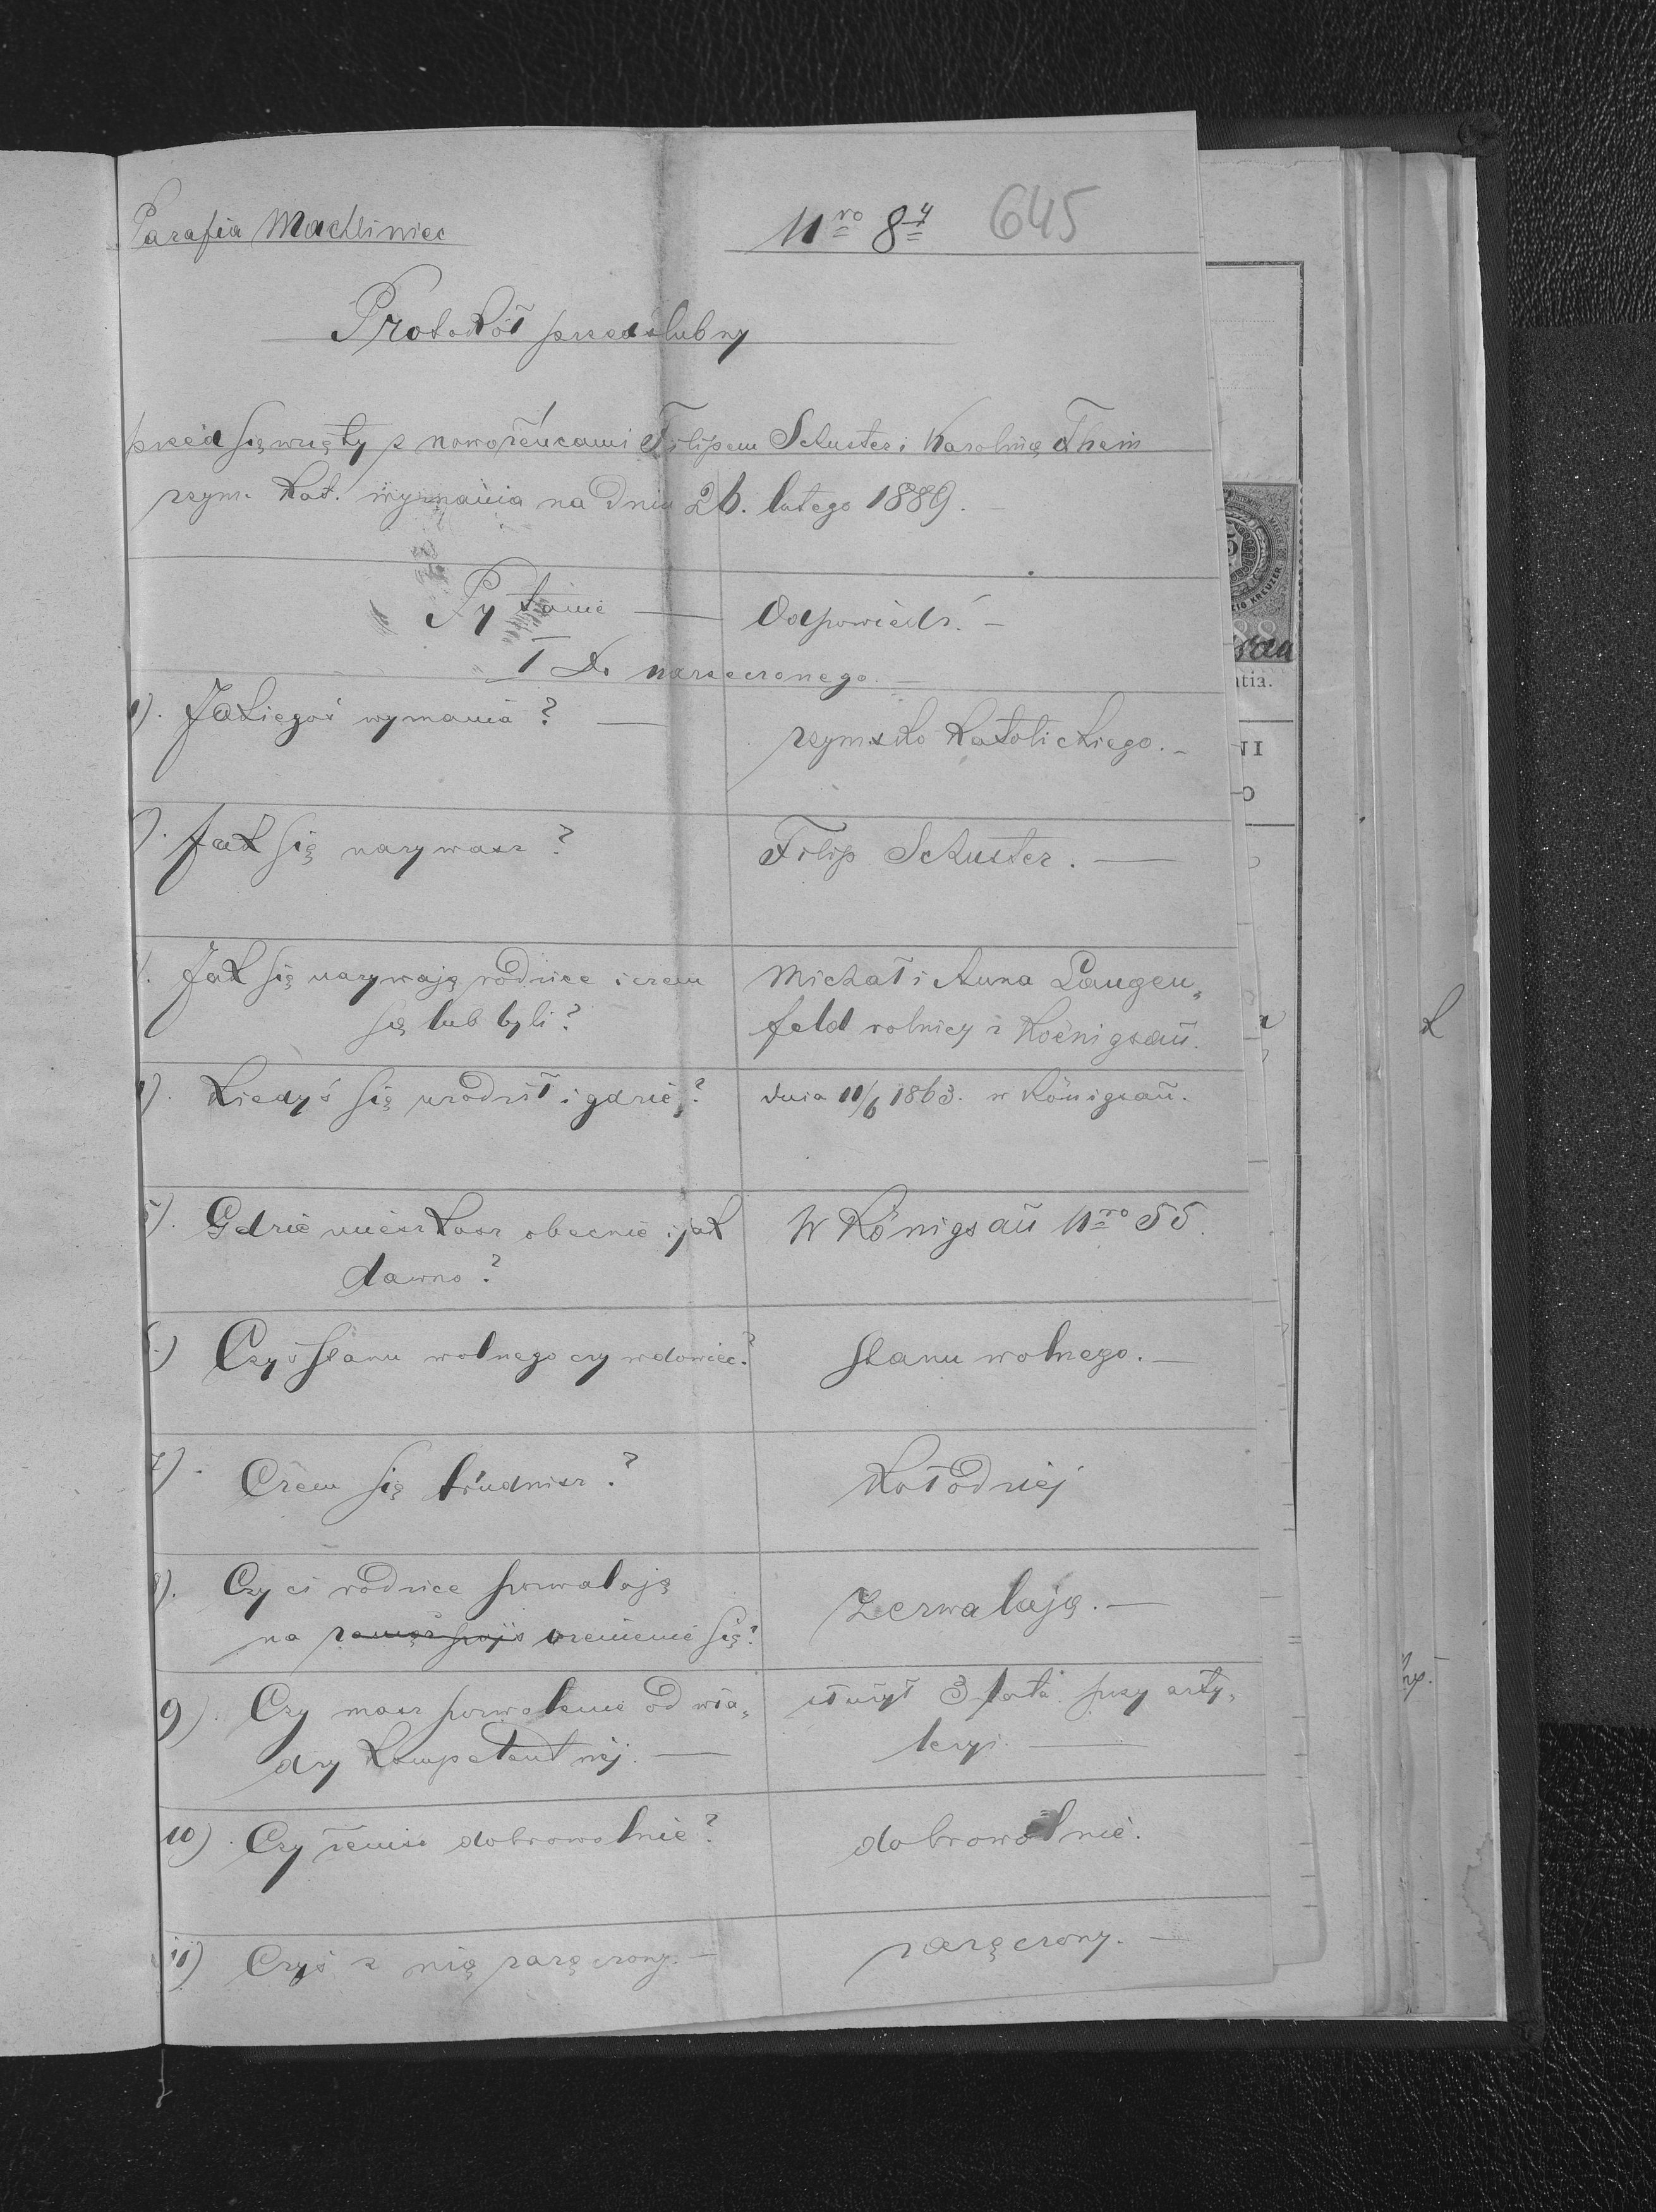 Parafia Machliniec
Nro 8
645
Protokół przedślubny
przedsięwzięty z nowożeńcami Filipem Schuster i Karoliną Thein
rzym. kat. wyznania na dniu 26. lutego 1889.
Pytanie — Odpowiedź. —
I Do narzeczonego. —
1). Jakiegoś wyznania? —
rzymsko katolickiego. —
). Jak się nazywasz?
Filip Schuster. —
). Jak się nazywają rodzice i czem
są lub byli?
Michał i Anna Langen„
feld rolnicy z Koenigsaŭ.
). Kiedyś się urodził i gdzie?
dnia 11/6 1863. w Königsaŭ.
5). Gdzie mieszkasz obecnie i jak
dawno?
W Königsaŭ Nro 55.
6) Czyś stanu wolnego czy wdowiec?
stanu wolnego. —
7). Czem się trudnisz?
Kołodziej
8). Czy ci rodzice pozwalają
na ożenienie się?
Zezwalają. —
9). Czy masz pozwolenie od wła„
dzy kompetentnéj. —
służył 3 lata przy arty„
leryi. —
10). Czy żenisz dobrowolnie?
dobrowolnie.
11) Czyś z nią zaręczony. —
zaręczony. —
5
KREUZER
88
tia.
NI
O